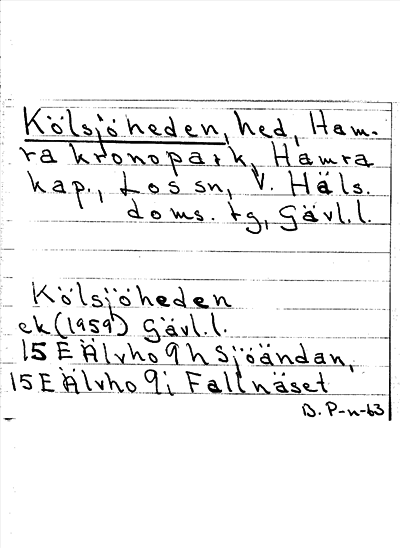 Kölsjöheden, hed, Ham-
ra kronopark, Hamra
kap., Los sn, V. Häls.
doms. tg, Gävl.l.
Kölsjöheden
ek (1959) Gävl.l.
15 E Älvho 9 h Sjöändan,
15 E Älvho 9 i Fallnäset
B. P-n-63